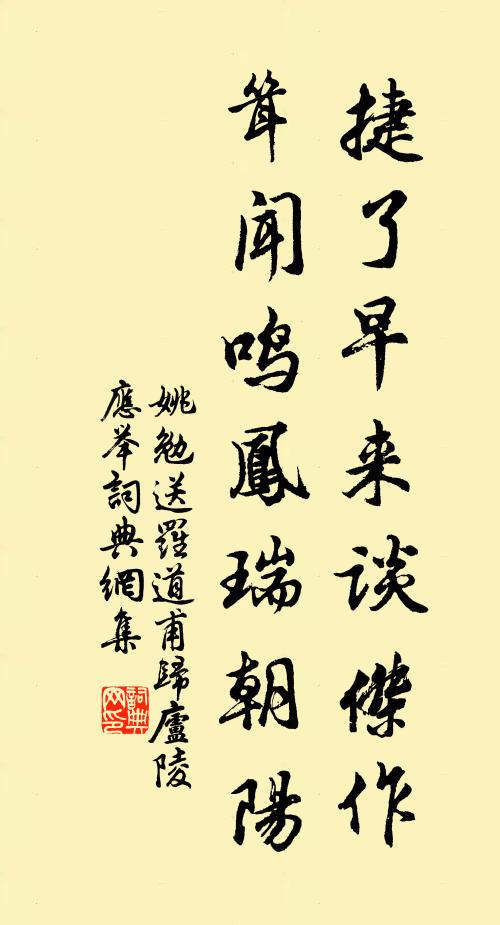 捷了早来谈傑作
耸闻鸣鳳瑞朝陽
姚勉送羅道甫歸廬陵
應举詞典網集
詞典网印